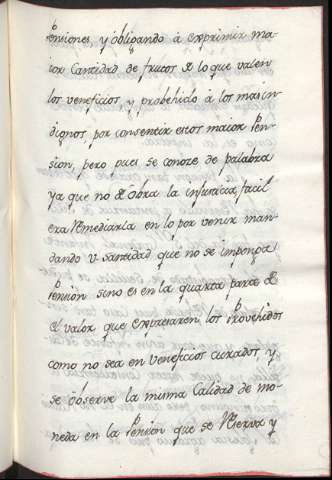 penssiones y obligando à exprimir ma-
ior Cantidad de frutos de lo que valen
los veneficios, y probehido à los mas in-
dignos, por consentir estos maior Pen-
sion, pero pues se conoze de palabra
ya que no de Obra la injusticia, facil
era Remediarla en lo por venir man-
dando V. santidad que no se imponga
Pension sino es en la quarta parte de
el valor que expresaren los Provehidos
como no sea en veneficios curados, y
se observe la misma Calidad de mo-
neda en la Pension que se Reserva y